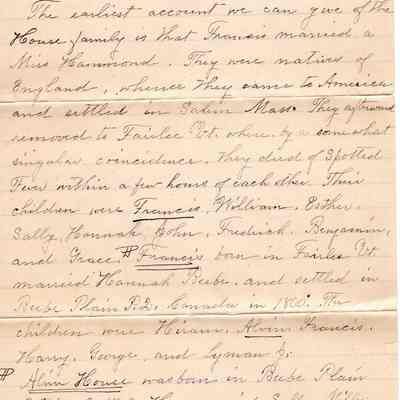 The earliest account we can give of the
House family is that Francis married a
Miss Hammond. They were natives of
England, whence they came to America
and settled in Salem Mass. They afterward
removed to Fairlee Vt. where, by a somewhat
singular coincidence, they died of Spotted
Fever within a few hours of each other. Their
children were Francis, William, Esther,
Sally, Hannah, John, Fredrick, Benjamin,
and Grace. Francis born in Fairlee Vt.
married Hannah Beebe, and settled in
Beebe Plain P.Q. Canada in
children were Hiram, Alvin Francis,
Harry, George, and Lyman
Alvin House was born in Beebe Plain